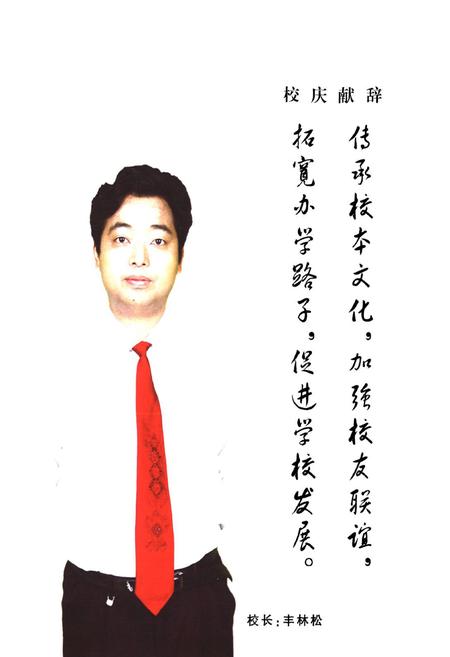 校庆献辞
传承校本文化，加强校友联谊，
拓宽办学路子，促进学校发展。
校长：丰林松